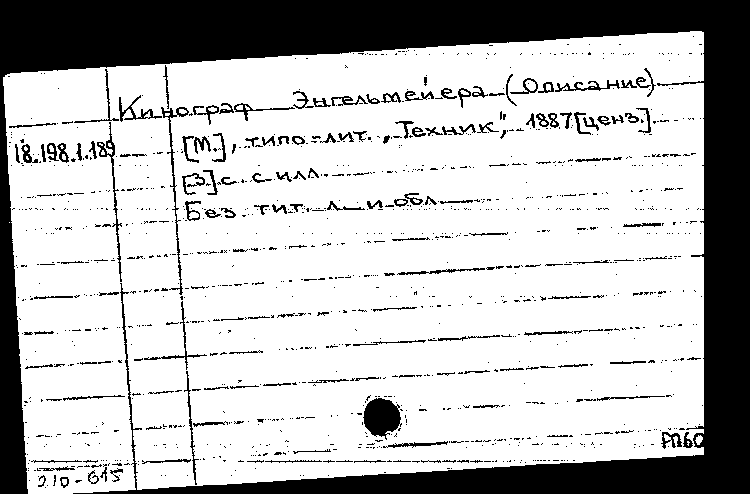 Кинограф Энгельмейера (Описание).
18.198.1.189 [М.], типо-лит. „Техник", 1887[ценз.].
[3]с. с илл.
Без тит. л. и обл.
210-615